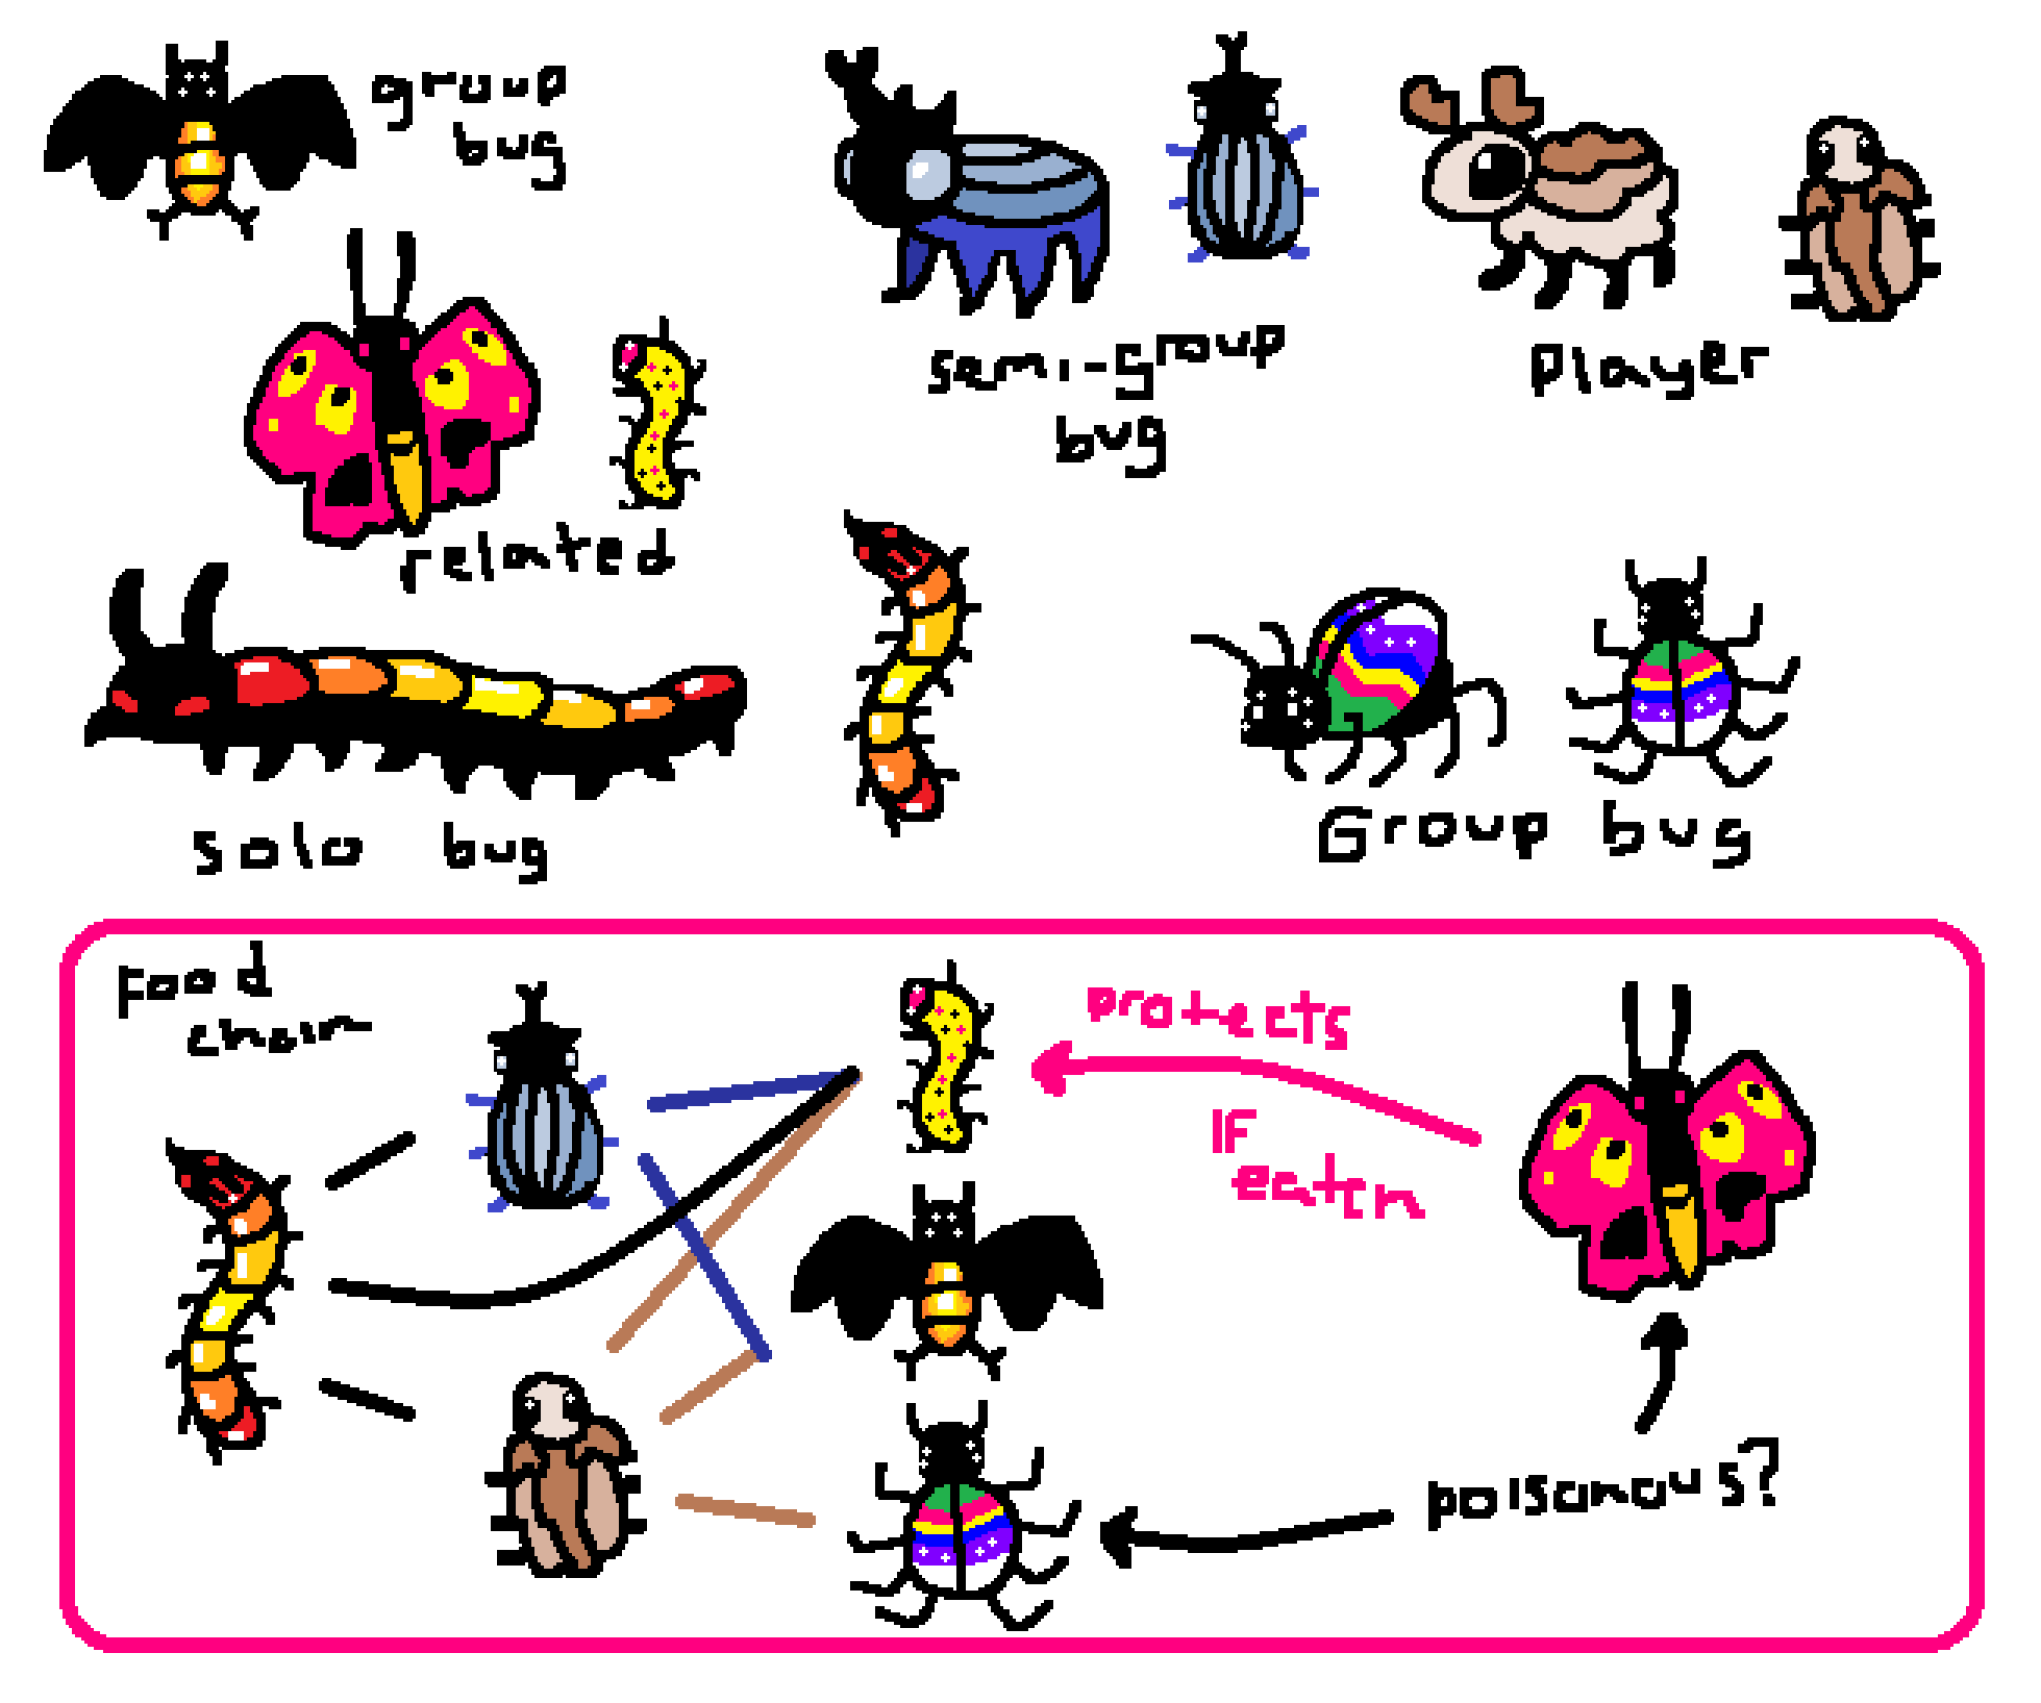 group
bug
semi-group
bug
Player
related
solo bug
Group bug
Food
chain
protects
IF
eaten
poisonous?